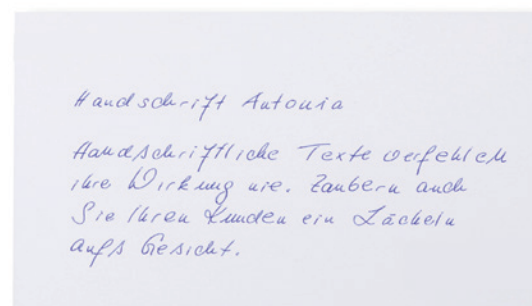 Handschrift Antonia
Handschriftliche Texte verfehlen
ihre Wirkung nie. Zaubern auch
Sie Ihren Kunden ein Lächeln
aufs Gesicht.